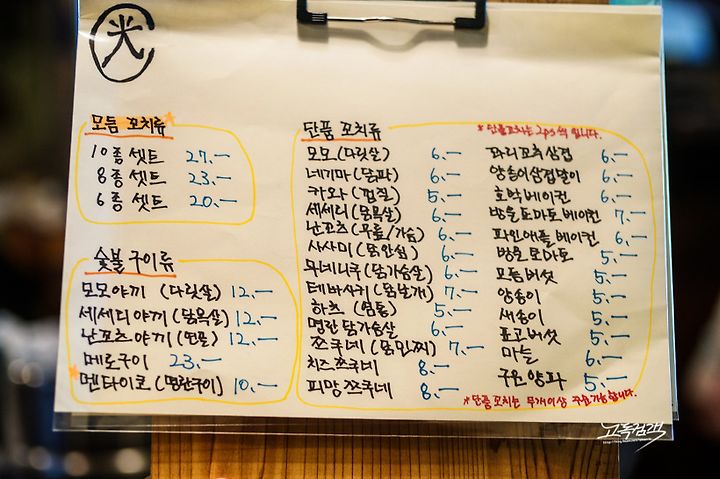 光
모듬 꼬치류
10종 셋트 27.—
8종 셋트 23.—
6종 셋트 20.—
숯불 구이류
모모야끼 (다릿살) 12.—
세세디야끼 (닭목살) 12.—
난꼬츠야끼 (연골) 12.—
메로구이 23.—
*멘타이코 (명란구이) 10.—
단품 꼬치류
*단품꼬치는 2ps씩 입니다.
모모 (다릿살) 6.—
네기마 (닭파) 6.—
카와 (껍질) 5.—
세세디 (닭목살) 6.—
난꼬츠 (무릎/가슴) 6.—
사사미 (닭안심) 6.—
무네니쿠 (닭가슴살) 6.—
테바사키 (닭날개) 7.—
하츠 (염통) 5.—
명란 닭가슴살 6.—
쯔쿠네 (닭민찌) 7.—
치즈쯔쿠네 8.—
피망 쯔쿠네 8.—
꽈리고추삼겹 6.—
양송이삼겹말이 6.—
호박베이컨 6.—
방울토마토베이컨 7.—
파인애플 베이컨 6.—
방울 토마토 5.—
모듬버섯 5.—
양송이 5.—
새송이 5.—
표고버섯 5.—
마늘 6.—
구운양파 5.—
*단품 꼬치는 두개이상 주문가능합니다.
고독검객